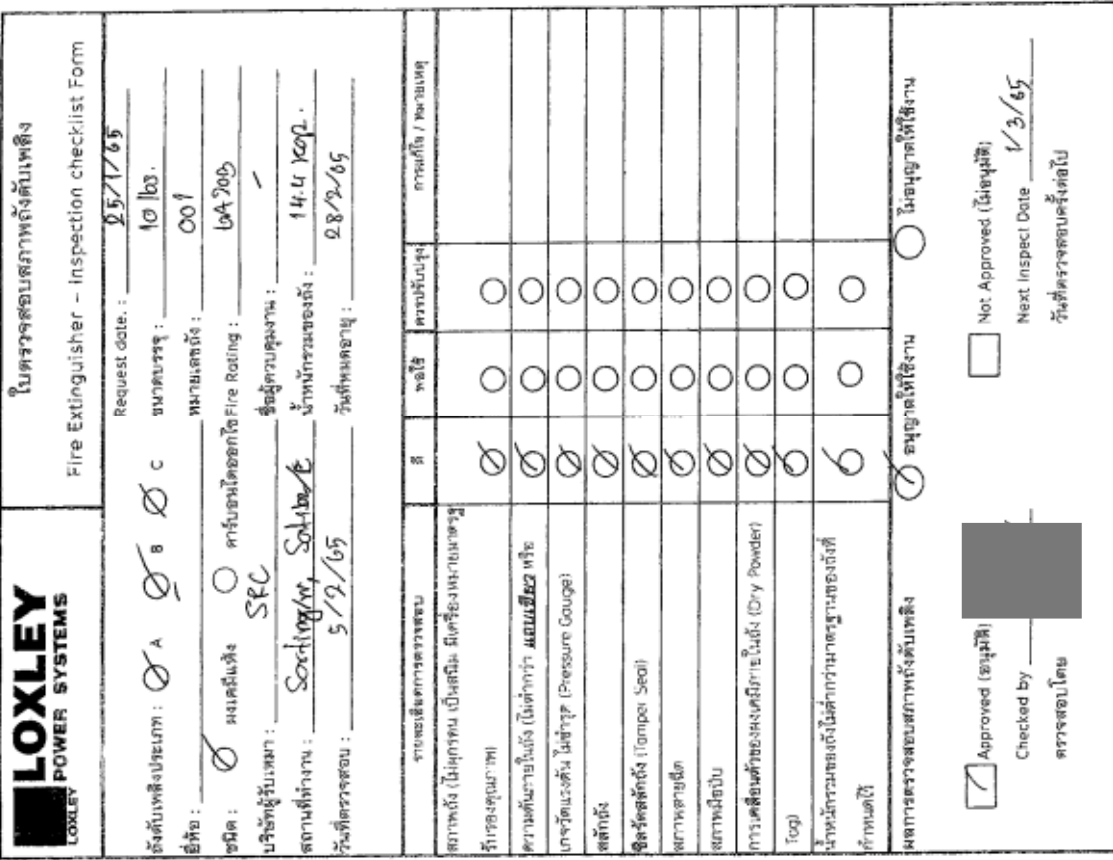 LOXLEY
POWER SYSTEMS
LOXLEY
ใบตรวจสอบสภาพถังดับเพลิง
Fire Extinguisher – Inspection checklist Form
ถังดับเพลิงประเภท : A B C
Request date. : 25/1/65
ยี่ห้อ :
ขนาดบรรจุ : 10 lbs.
หมายเลขถัง : 001
ชนิด : ผงเคมีแห้ง คาร์บอนไดออกไซ Fire Rating :
บริษัทผู้รับเหมา : SRC
ชื่อผู้ควบคุมงาน : -
สถานที่ทำงาน :
น้ำหนักรวมของถัง : 14.4
วันที่ตรวจสอบ : 5/2/65
วันที่หมดอายุ : 28/2/65
รายละเอียดการตรวจสอบ ดี พอใช้ ควรปรับปรุง การแก้ไข / หมายเหตุ
สภาพถัง (ไม่ผุกร่อน เป็นสนิม มีเครื่องหมายมาตรฐ
รับรองคุณภาพ)
ความดันภายในถัง (ไม่ต่ำกว่า แถบเขียว หรือ
เกจวัดแรงดัน ไม่ชำรุด (Pressure Gauge)
สลักถัง
ซีลรัดสลักถัง (Tamper Seal)
สภาพสายฉีด
สภาพมือบีบ
การเคลื่อนตัวของผงเคมีภายในถัง (Dry Powder)
Tag)
น้ำหนักรวมของถังไม่ต่ำกว่ามาตรฐานของถังที่
กำหนดไว้
ผลการตรวจสอบสภาพถังดับเพลิง อนุญาตให้ใช้งาน ไม่อนุญาตให้ใช้งาน
Approved (อนุมัติ)
Not Approved (ไม่อนุมัติ)
Checked by
Next Inspect Date 1/3/65
ตรวจสอบโดย
วันที่ตรวจสอบครั้งต่อไป